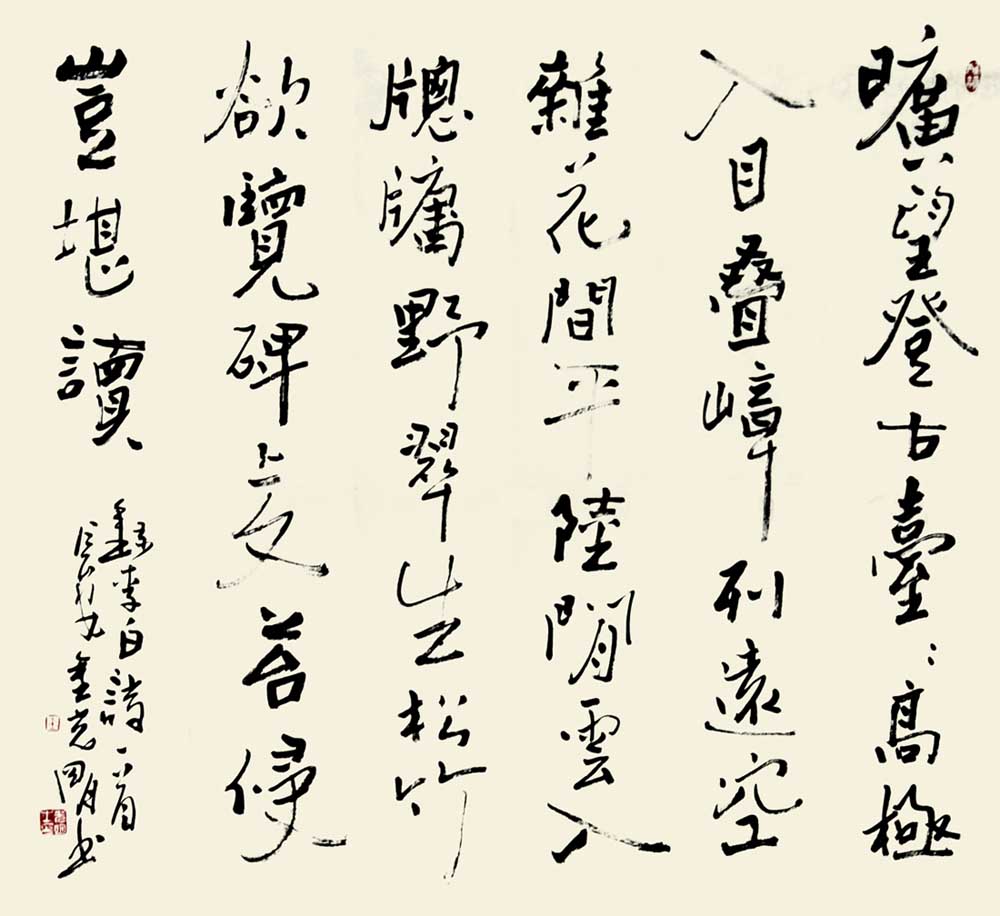 曠望登古臺〻高極
人目疊嶂列遠空
雜花間平陸閒雲入
牕牖野翠生松竹
欲覽碑上文苔侵
豈堪讀
錄李白詩一首
書